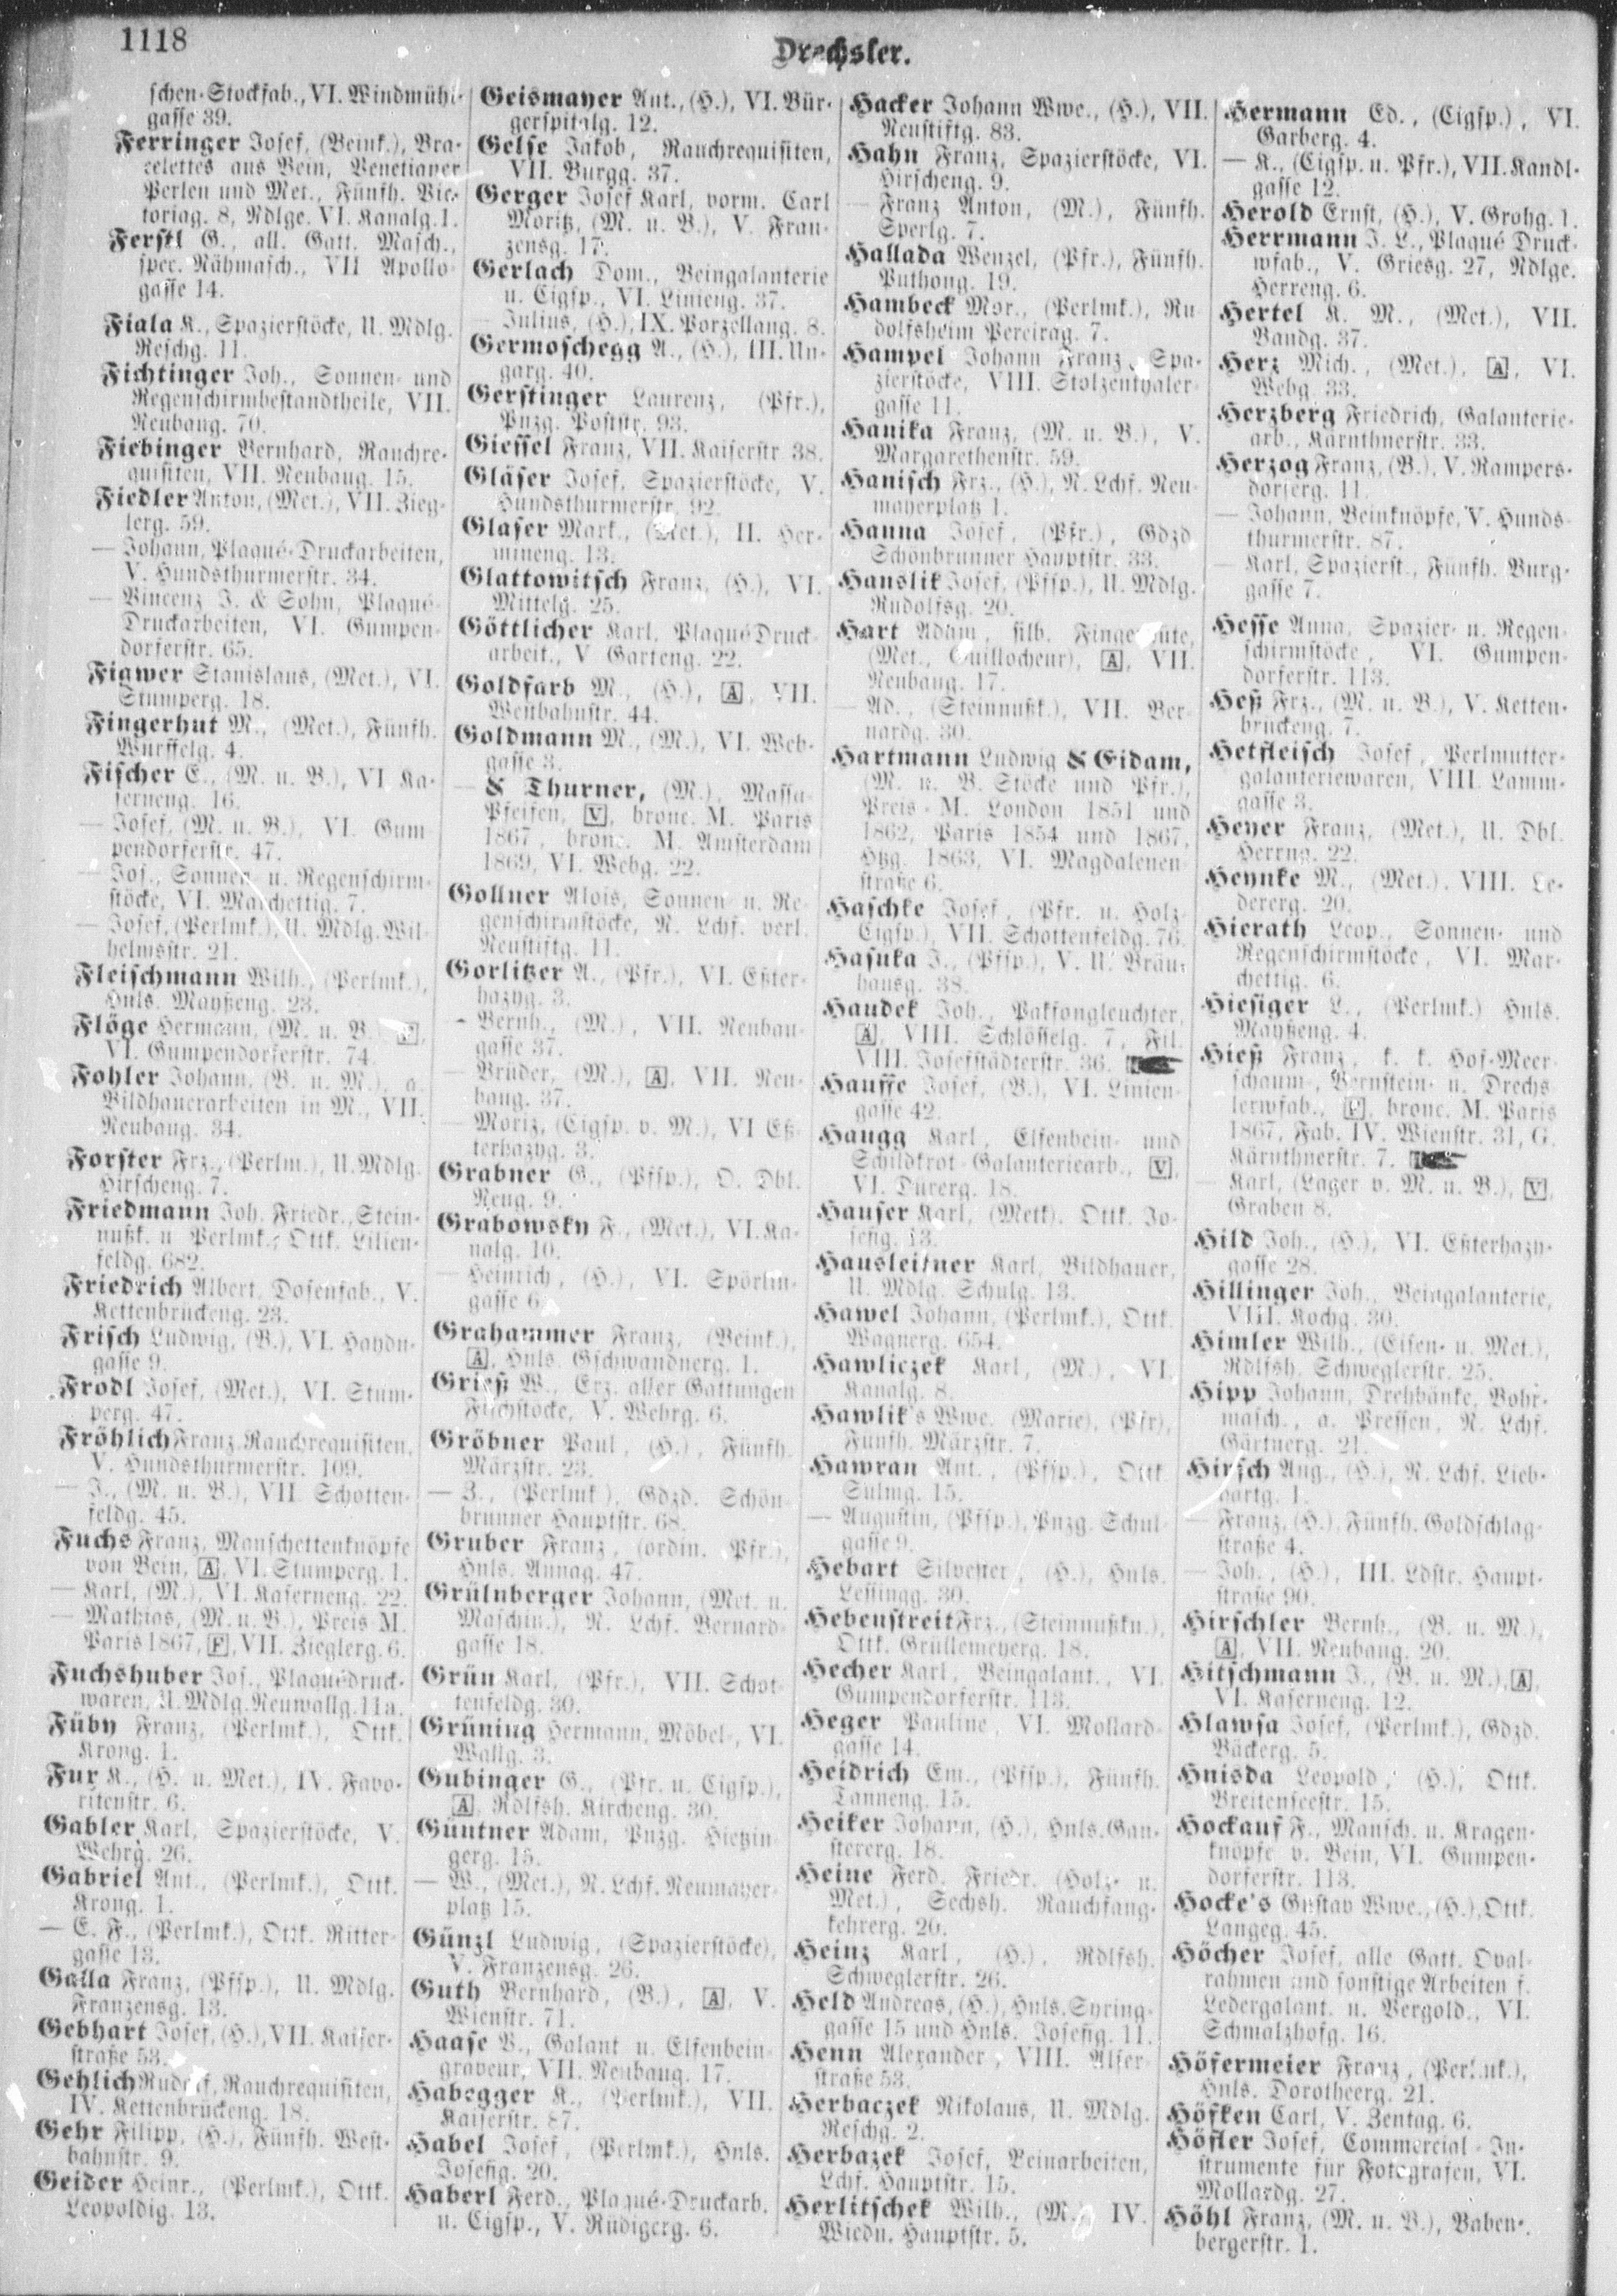 1118
Drechsler.
schen-Stockfab., VI. Windmühl-
gasse 39.
Ferringer Josef, (Beink.), Bra-
celettes aus Bein, Venetianer
Perlen und Met., Fünfh. Vic-
toriag. 8, Ndlge. VI. Kanalg. 1.
Ferstl G., all. Gatt. Masch.,
sper. Nähmasch., VII Apollo-
gasse 14.
Fiala K., Spazierstöcke, U. Mdlg.
Reschg. 11.
Fichtinger Joh., Sonnen- und
Regenschirmbestandtheile, VII.
Neubaug. 70.
Fiebinger Bernhard, Rauchre-
quisiten, VII. Neubaug. 15.
Fiedler Anton, (Met.), VII. Zieg-
lerg. 59.
— Johann, Plaqué-Druckarbeiten,
V. Hundsthurmerstr. 34.
— Vincenz J. & Sohn, Plaqué-
Druckarbeiten, VI. Gumpen-
dorferstr. 65.
Figwer Stanislaus, (Met.), VI.
Stumperg. 18.
Fingerhut M., (Met.), Fünfh.
Wurffelg. 4.
Fischer E., (M. u. B.), VI Ka-
serneng. 16.
— Josef, (M. u. B.), VI. Gum
pendorferstr. 47.
— Jos., Sonnen- u. Regenschirm-
stöcke, VI. Marchettig. 7.
— Josef, (Perlmk.), U. Mdlg. Wil-
helmsstr. 21.
Fleischmann Wilh., (Perlmk.),
Hnls. Mayßeng. 23.
Flöge Hermann, (M. u. B.)
VI. Gumpendorferstr. 74.
Fohler Johann, (B. u. M.), a.
Bildhauerarbeiten in M., VII.
Neubaug. 34.
Forster Frz., (Perlm.), U. Mdlg.
Hirscheng. 7.
Friedmann Joh. Friedr., Stein-
nußk. u Perlmk., Ottk. Lilien-
feldg. 682.
Friedrich Albert, Dosenfab., V.
Kettenbrückeng. 23.
Frisch Ludwig, (B.), VI. Haydn-
gasse 9.
Frodl Josef, (Met.), VI. Stum-
perg. 47.
Fröhlich Franz, Rauchrequisiten,
V. Hundsthurmerstr. 109.
— J., (M. u. B.), VII Schotten-
feldg. 45.
Fuchs Franz, Manschettenknöpfe
von Bein, A, VI. Stumperg. 1.
— Karl, (M.), VI. Kaserneng. 22.
— Mathias, (M. u. B.), Preis M.
Paris 1867, F, VII. Zieglerg. 6.
Fuchshuber Jos., Plaquédruck-
waren, U. Mdlg. Neuwallg. 11a.
Füby Franz, (Perlmk.), Ottk.
Krong. 1.
Fux K., (H. u. Met.), IV. Favo-
ritenstr. 6.
Gabler Karl, Spazierstöcke, V.
Wehrg. 26.
Gabriel Ant., (Perlmk.), Ottk.
Krong. 1.
— E. F., (Perlmk.), Ottk. Ritter-
gasse 13.
Galla Franz, (Pfsp.), U. Mdlg.
Franzensg. 13.
Gebhart Josef, (H.), VII. Kaiser-
straße 53.
Gehlich Rudolf, Rauchrequisiten,
IV. Kettenbrückeng. 18.
Gehr Filipp, (H.), Fünfh. West-
bahnstr. 9.
Geider Heinr., (Perlmk.), Ottk.
Leopoldig. 13.
Geismayer Ant., (H.), VI. Bür-
gerspitalg. 12.
Gelse Jakob, Rauchrequisiten,
VII. Burgg. 37.
Gerger Josef Karl, vorm. Carl
Moritz, (M. u. B.), V. Fran-
zensg. 17.
Gerlach Dom., Beingalanterie
u. Cigsp., VI. Linieng. 37.
— Julius, (H.), IX. Porzellang. 8.
Germoschegg A., (H.), III. Un-
garg. 40.
Gerstinger Laurenz, (Pfr.),
Pnzg. Poststr. 93.
Giessel Franz, VII. Kaiserstr 38.
Gläser Josef, Spazierstöcke, V.
Hundsthurmerstr. 92.
Glaser Mark., (Met.), II. Her-
mineng. 13.
Glattowitsch Franz, (H.), VI.
Mittelg. 25.
Göttlicher Karl, Plaqué Druck-
arbeit., V Garteng. 22.
Goldfarb M., (H.), A, VII.
Westbahnstr. 44.
Goldmann M., (M.), VI. Web-
gasse 3.
— & Thurner, (M.), Massa-
Pfeifen, V, bronc. M. Paris
1867, bronc. M. Amsterdam
1869, VI. Webg. 22.
Gollner Alois, Sonnen- u. Re-
genschirmstöcke, N. Lchf. verl.
Neustiftg. 11.
Gorlitzer A., (Pfr.), VI. Eßter-
hazyg. 3.
— Bernh., (M.), VII. Neubau-
gasse 37.
— Brüder, (M.), A, VII. Neu-
baug. 37.
— Moriz, (Cigsp. v. M.), VI Eß-
terhazyg. 3.
Grabner G., (Pfsp.), O. Dbl.
Neug. 9.
Grabowsky F., (Met.), VI. Ka-
nalg. 10.
— Heinrich, (H.), VI. Spörlin-
gasse 6.
Grahammer Franz, (Beink.),
A, Hnls. Gschwandnerg. 1.
Grieß W., Erz. aller Gattungen
Fischstöcke, V. Wehrg. 6.
Gröbner Paul, (H.), Fünfh.
Märzstr. 23.
— J., (Perlmk.), Gdzd. Schön-
brunner Hauptstr. 68.
Gruber Franz, (ordin. Pfr.),
Hnls. Annag. 47.
Grülnberger Johann, (Met. u.
Maschin.), N. Lchf. Bernard-
gasse 18.
Grün Karl, (Pfr.), VII. Schot-
tenfeldg. 30.
Grüning Hermann, Möbel-, VI.
Wallg. 3.
Gubinger G., (Pfr. u. Cigsp.),
A, Rdlfsh. Kircheng. 30.
Güntner Adam, Pnzg. Hietzin-
gerg. 15.
— W., (Met.), N. Lchf. Neumayer-
platz 15.
Günzl Ludwig, (Spazierstöcke),
V. Franzensg. 26.
Guth Bernhard, (B.), A, V.
Wienstr. 71.
Haase B., Galant u. Elfenbein-
graveur, VII. Neubaug. 17.
Habegger K., (Perlmk.), VII.
Kaiserstr. 87.
Habel Josef, (Perlmk.), Hnls.
Josefig. 20.
Haberl Ferd., Plaqué-Druckarb.
u. Cigsp., V. Rüdigerg. 6.
Hacker Johann Wwe., (H.), VII.
Neustiftg. 83.
Hahn Franz, Spazierstöcke, VI.
Hirscheng. 9.
— Franz Anton, (M.), Fünfh.
Sperlg. 7.
Hallada Wenzel, (Pfr.), Fünfh.
Puthong. 19.
Hambeck Mor., (Perlmk.), Ru
dolfsheim Pereirag. 7.
Hampel Johann Franz, Spa-
zierstöcke, VIII. Stolzenthaler-
gasse 11.
Hanika Franz, (M. u. B.), V.
Margarethenstr. 59.
Hanisch Frz., (H.), N. Lchf. Neu-
mayerplatz 1.
Hanna Josef, (Pfr.), Gdzd
Schönbrunner Hauptstr. 33.
Hanslik Josef, (Pfsp.), U. Mdlg.
Rudolfsg. 20.
Hart Adam, silb. Fingerhüte,
(Met., Guillocheur), A, VII.
Neubaug. 17.
— Ad., (Steinnußk.), VII. Ber-
nardg. 30.
Hartmann Ludwig & Eidam,
(M. u. B. Stöcke und Pfr.),
Preis-M. London 1851 und
1862, Paris 1854 und 1867,
Hbg. 1863, VI. Magdalenen-
straße 6.
Haschke Josef, (Pfr. u. Holz-
Cigsp.), VII. Schottenfeldg. 76.
Hasuka J., (Pfsp.), V. U. Bräu-
hausg. 38.
Haudek Joh., Pakfongleuchter,
A, VIII. Schlösselg. 7, Fil.
VIII. Josefstädterstr. 36.
Hauffe Josef, (B.), VI. Linien-
gasse 42.
Haugg Karl, Elfenbein- und
Schildkrot-Galanteriearb., V,
VI. Dürerg. 18.
Hauser Karl, (Metk). Ottk. Jo-
sefig. 13.
Hausleitner Karl, Bildhauer,
U. Mdlg. Schulg. 13.
Hawel Johann, (Perlmk.), Ottk.
Wagnerg. 654.
Hawliczek Karl, (M.), VI.
Kanalg. 8.
Hawlik's Wwe. (Marie), (Pfr),
Fünfh. Märzstr. 7.
Hawran Ant., (Pfsp.), Ottk.
Sulmg. 15.
— Augustin, (Pfsp.), Pnzg. Schul-
gasse 9.
Hebart Silvester, (H.), Hnls.
Lessingg. 30.
Hebenstreit Frz., (Steinnußkn.),
Ottk. Grüllemeyerg. 18.
Hecher Karl, Beingalant., VI.
Gumpendorferstr. 113.
Heger Pauline, VI. Mollard-
gasse 14.
Heidrich Em., (Pfsp.), Fünfh.
Tanneng. 15.
Heiker Johann, (H.), Hnls. Gan-
stererg. 18.
Heine Ferd. Friedr. (Holz- u.
Met.), Sechsh. Rauchfang-
kehrerg. 20.
Heinz Karl, (H.), Rdlfsh.
Schweglerstr. 26.
Held Andreas, (H.), Hnls. Syring-
gasse 15 und Hnls. Josefig. 11.
Henn Alexander, VIII. Alser-
straße 53.
Herbaczek Nikolaus, U. Mdlg.
Reschg. 2.
Herbazek Josef, Beinarbeiten,
Lchf. Hauptstr. 15.
Herlitschek Wilh., (M.), IV.
Wiedn. Hauptstr. 5.
Hermann Ed., (Cigsp.), VI.
Garberg. 4.
— K., (Cigsp. u. Pfr.), VII. Kandl-
gasse 12.
Herold Ernst, (H.), V. Grohg. 1.
Herrmann J. L., Plaqué Druck-
wfab., V. Griesg. 27, Ndlge.
Herreng. 6.
Hertel K. M., (Met.), VII.
Bandg. 37.
Herz Mich., (Met.), A, VI.
Webg. 33.
Herzberg Friedrich, Galanterie-
arb., Kärnthnerstr. 33.
Herzog Franz, (B.), V. Rampers-
dorferg. 11.
— Johann, Beinknöpfe, V. Hunds-
thurmerstr. 87.
— Karl, Spazierst., Fünfh. Burg-
gasse 7.
Hesse Anna, Spazier- u. Regen-
schirmstöcke, VI. Gumpen-
dorferstr. 113.
Heß Frz., (M. u. B.), V. Ketten-
brückeng. 7.
Hetfleisch Josef, Perlmutter-
galanteriewaren, VIII. Lamm-
gasse 3.
Heyer Franz, (Met.), U. Dbl.
Herrng. 22.
Heynke M., (Met.). VIII. Le-
dererg. 20.
Hierath Leop., Sonnen- und
Regenschirmstöcke, VI. Mar-
chettig. 6.
Hiesiger L., (Perlmk.) Hnls.
Mayßeng. 4.
Hieß Franz, k. k. Hof-Meer-
schaum-, Bernstein- u. Drechs-
lerwfab., F, bronc. M. Paris
1867, Fab. IV. Wienstr. 31, G.
Kärnthnerstr. 7.
— Karl, (Lager v. M. u. B.), V,
Graben 8.
Hild Joh., (H.), VI. Eßterhazy-
gasse 28.
Hillinger Joh., Beingalanterie,
VIII. Kochg. 30.
Himler Wilh., (Eisen- u. Met.),
Rdlfsh. Schweglerstr. 25.
Hipp Johann, Drehbänke, Bohr-
masch., a. Pressen, N. Lchf.
Gärtnerg. 21.
Hirsch Aug., (H.), N. Lchf. Lieb-
hartg. 1.
— Franz, (H.), Fünfh. Goldschlag-
straße 4.
— Joh., (H.), III. Ldstr. Haupt-
straße 90.
Hirschler Bernh., (B. u. M.),
A, VII. Neubaug. 20.
Hitschmann J., (B. u. M.), A,
VI. Kaserneng. 12.
Hlawsa Josef, (Perlmk.), Gdzd.
Bäckerg. 5.
Hnisda Leopold, (H.), Ottk.
Breitenseestr. 15.
Hockauf F., Mansch. u. Kragen-
knöpfe v. Bein, VI. Gumpen-
dorferstr. 113.
Hocke's Gustav Wwe., (H.), Ottk.
Langeg. 45.
Höcher Josef, alle Gatt. Oval-
rahmen und sonstige Arbeiten f.
Ledergalant. u. Vergold., VI.
Schmalzhofg. 16.
Höfermeier Franz, (Perlmk.),
Hnls. Dorotheerg. 21.
Höfken Carl, V. Zentag. 6.
Höfler Josef, Commercial-In-
strumente für Fotografen, VI.
Mollardg. 27.
Höhl Franz, (M. u. B.), Baben-
bergerstr. 1.